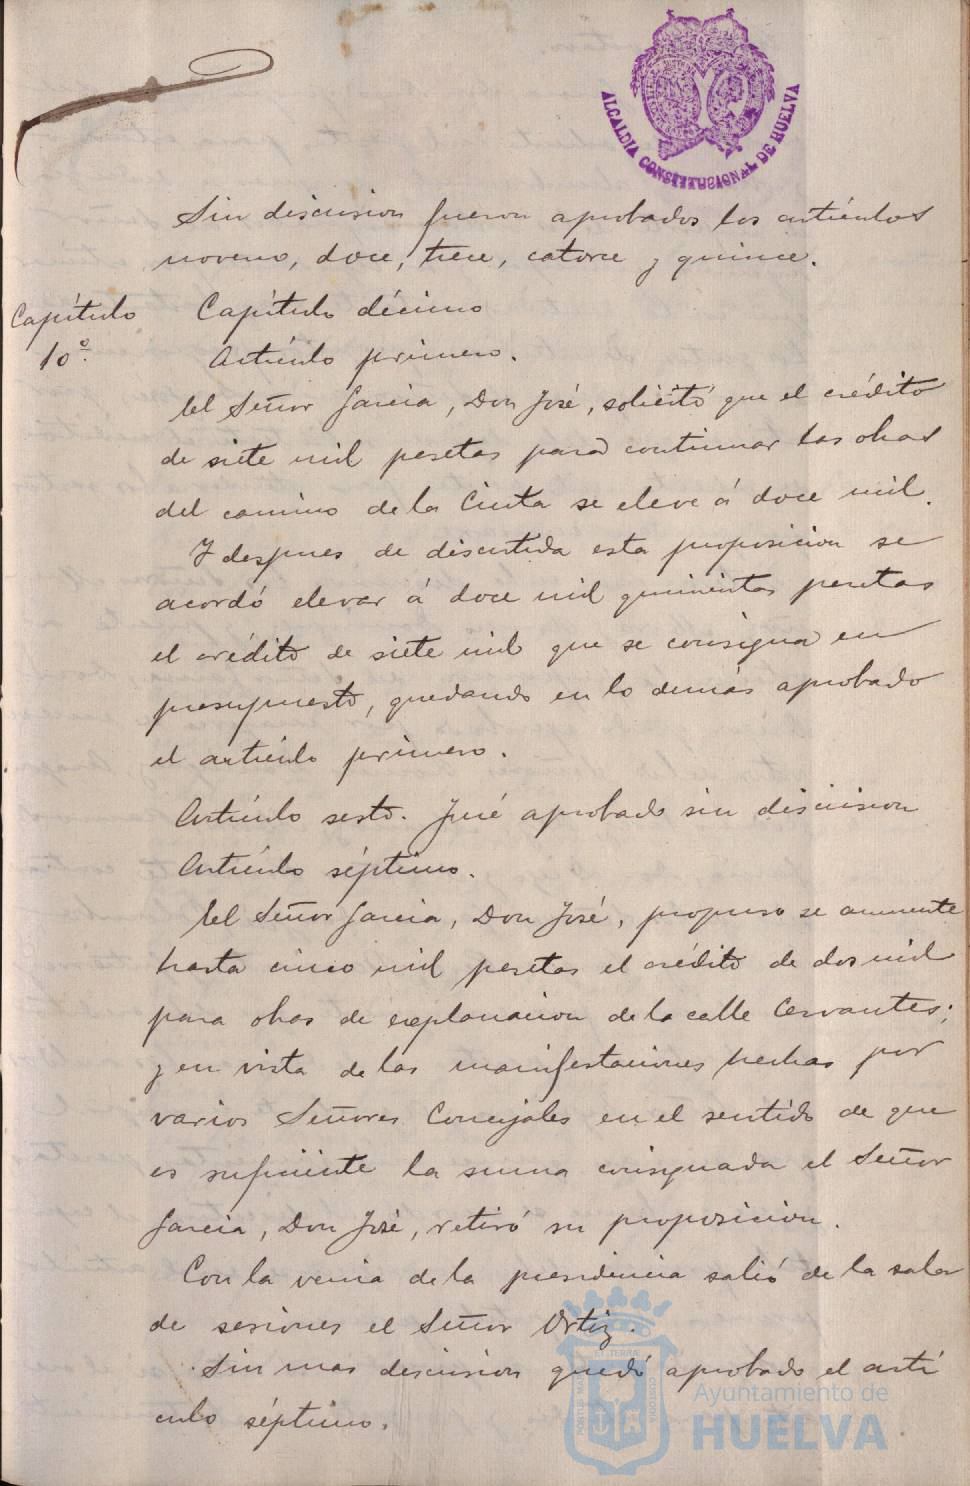 ALCALDIA CONSTITUCIONAL DE HUELVA
Sin discusion fueron aprobados los artículos
noveno, doce, trece, catorce y quince.
Capítulo
10º.
Capítulo décimo
Artículo primero.
El Señor Garcia, Don José, solicitó que el crédito
de siete mil pesetas para continuar las obras
del camino de la Cinta se eleve á doce mil.
Y despues de discutida esta proposicion se
acordó elevar á doce mil quinientas pesetas
el crédito de siete mil que se consigna en
presupuesto, quedando en lo demás aprobado
el artículo primero.
Artículo sesto. Fué aprobado sin discusion
Artículo séptimo.
El Señor Garcia, Don José, propuso se aumente
hasta cinco mil pesetas el crédito de dos mil
para obras de explanacion de la calle Cervantes;
y en vista de las manifestaciones hechas por
varios Señores Concejales en el sentido de que
es suficiente la suma consignada el Señor
Garcia, Don José, retiró su proposicion.
Con la venia de la presidencia salió de la sala
de sesiones el Señor Ortiz.
Sin mas discusion quedó aprobado el artí
culo séptimo.
PORTUS MARIS ET TERRAE CUSTODIA
Ayuntamiento de
HUELVA